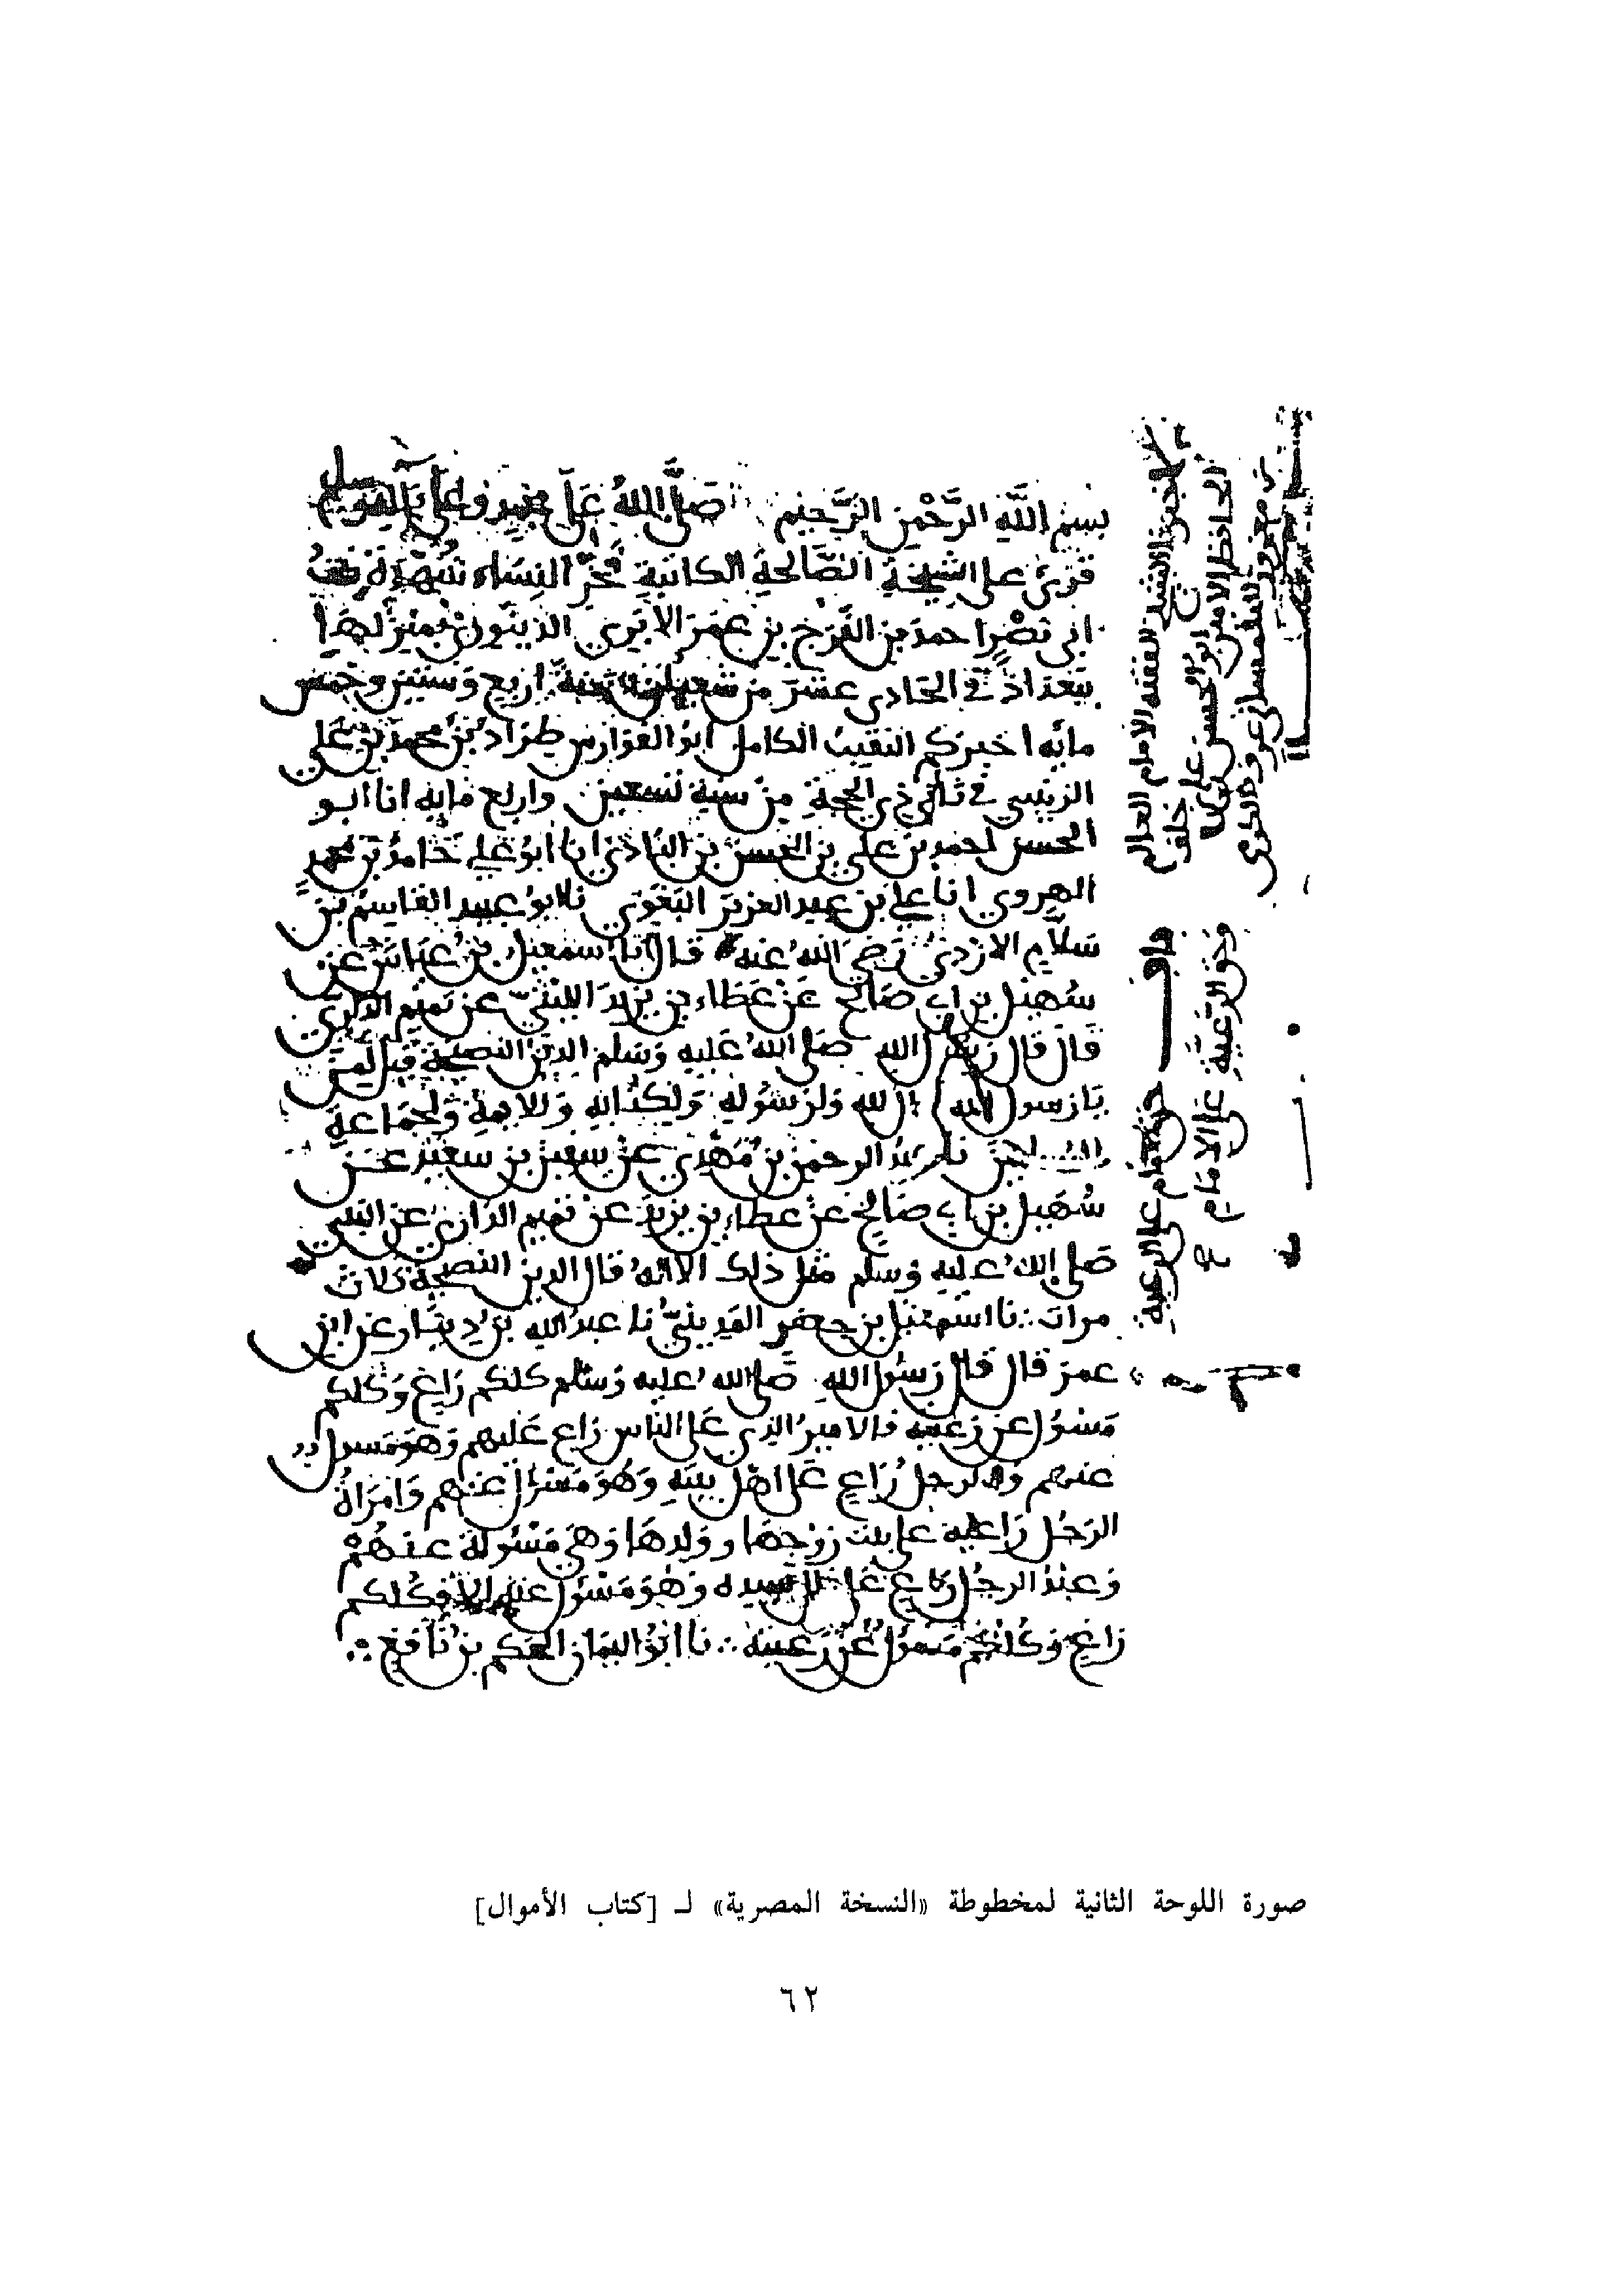 بسم الله الرحمن الرحيم صلى الله على محمد وعلى آله وسلم
قرئ على الشيخة الصالحة الكاتبة فخر النساء شهدة بنت
ابي نصر احمد بن الفرج بن عمر الابري الدينوري بمنزلها
ببغداذ في الحادي عشر من شعبان سنة اربع وستين وخمس
مايه اخبركم النقيب الكامل ابو الفوارس طراد بن محمد بن علي
الزينبي في ذي الحجة من سنة تسعين واربع مايه انا ابو
الحسن احمد بن علي بن الحسن بن البادي انا ابو علي حامد بن محمد
الهروي انا علي بن عبد العزيز البغوي نا ابو عبيد القاسم بن
سلام الازدي رضي الله عنه قال نا اسمعيل بن عياش عن
سهيل بن ابي صالح عن عطاء بن يزيد الليثي عن تميم الداري
قال قال رسول الله صلى الله عليه وسلم الدين النصيحة قيل لمن
يا رسول الله قال لله ولرسوله ولكتابه وللايمة ولجماعة
المسلمين نا عبد الرحمن بن مهدي عن سفين بن سعيد عن
سهيل بن ابي صالح عن عطاء بن يزيد عن تميم الداري عن النبي
صلى الله عليه وسلم مثل ذلك الا انه قال الدين النصيحة ثلاث
مرات نا اسمعيل بن جعفر المديني نا عبد الله بن دينار عن ابن
عمر قال قال رسول الله صلى الله عليه وسلم كلكم راع وكلكم
مسؤل عن رعيته فالامير الذي على الناس راع عليهم وهو مسول
عنهم والرجل راع على اهل بيته وهو مسؤل عنهم وامراة
الرجل راعية على بيت زوجها وولدها وهي مسئولة عنهم
وعبد الرجل راع على مال سيده وهو مسؤل عنه الا فكلكم
راع وكلكم مسؤل عن رعيته نا ابو اليمان الحكم بن نافع
الفقيه الامام العالم
الحافظ الامين ابو الحسن علي
خلف
حق الامام على الرعية
وحق الرعية على الامام
صورة اللوحة الثانية لمخطوطة «النسخة المصرية» لـ [كتاب الأموال]
٦٢